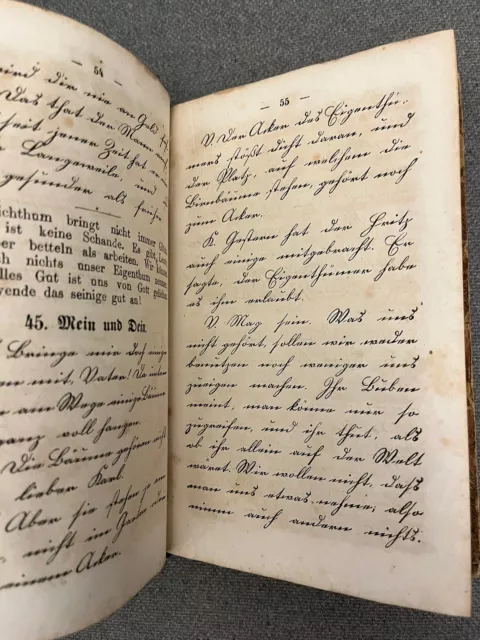 — 54 —
wird die nie an Geld
Das that der Mann
seit jener Zeit hat er
Langeweile, und
gesunder als früher
ichthum bringt nicht immer
ist keine Schande. Es gibt
ber betteln als arbeiten. Wir
ch nichts unser Eigenthum nennen
lles Gut ist uns von Gott gegeben
wende das seinige gut an!
45. Mein und Dein.
Bringe mir doch einige
mit, Vater! Da unten
am Wege einige Bäume
ganz voll hangen.
Die Bäume gehören nicht
lieber Karl.
Aber sie stehen ja
nicht im Garten oder
einem Acker.
— 55 —
V. Der Acker des Eigenthü-
mers stößt dicht daran, und
der Platz, auf welchem die
Birnbäume stehen, gehört noch
zum Acker.
K. Gestern hat der Fritz
auch einige mitgebracht. Er
sagte, der Eigenthümer habe
es ihm erlaubt.
V. Mag sein. Was uns
nicht gehört, sollen wir weder
benutzen noch weniger uns
zueigen machen. Ihr Buben
meint, man könne nur so
zugreifen, und ihr thut, als
ob ihr allein auf der Welt
wäret. Wir wollen nicht, dass
man uns etwas nehme; also
nimm auch andern nichts.